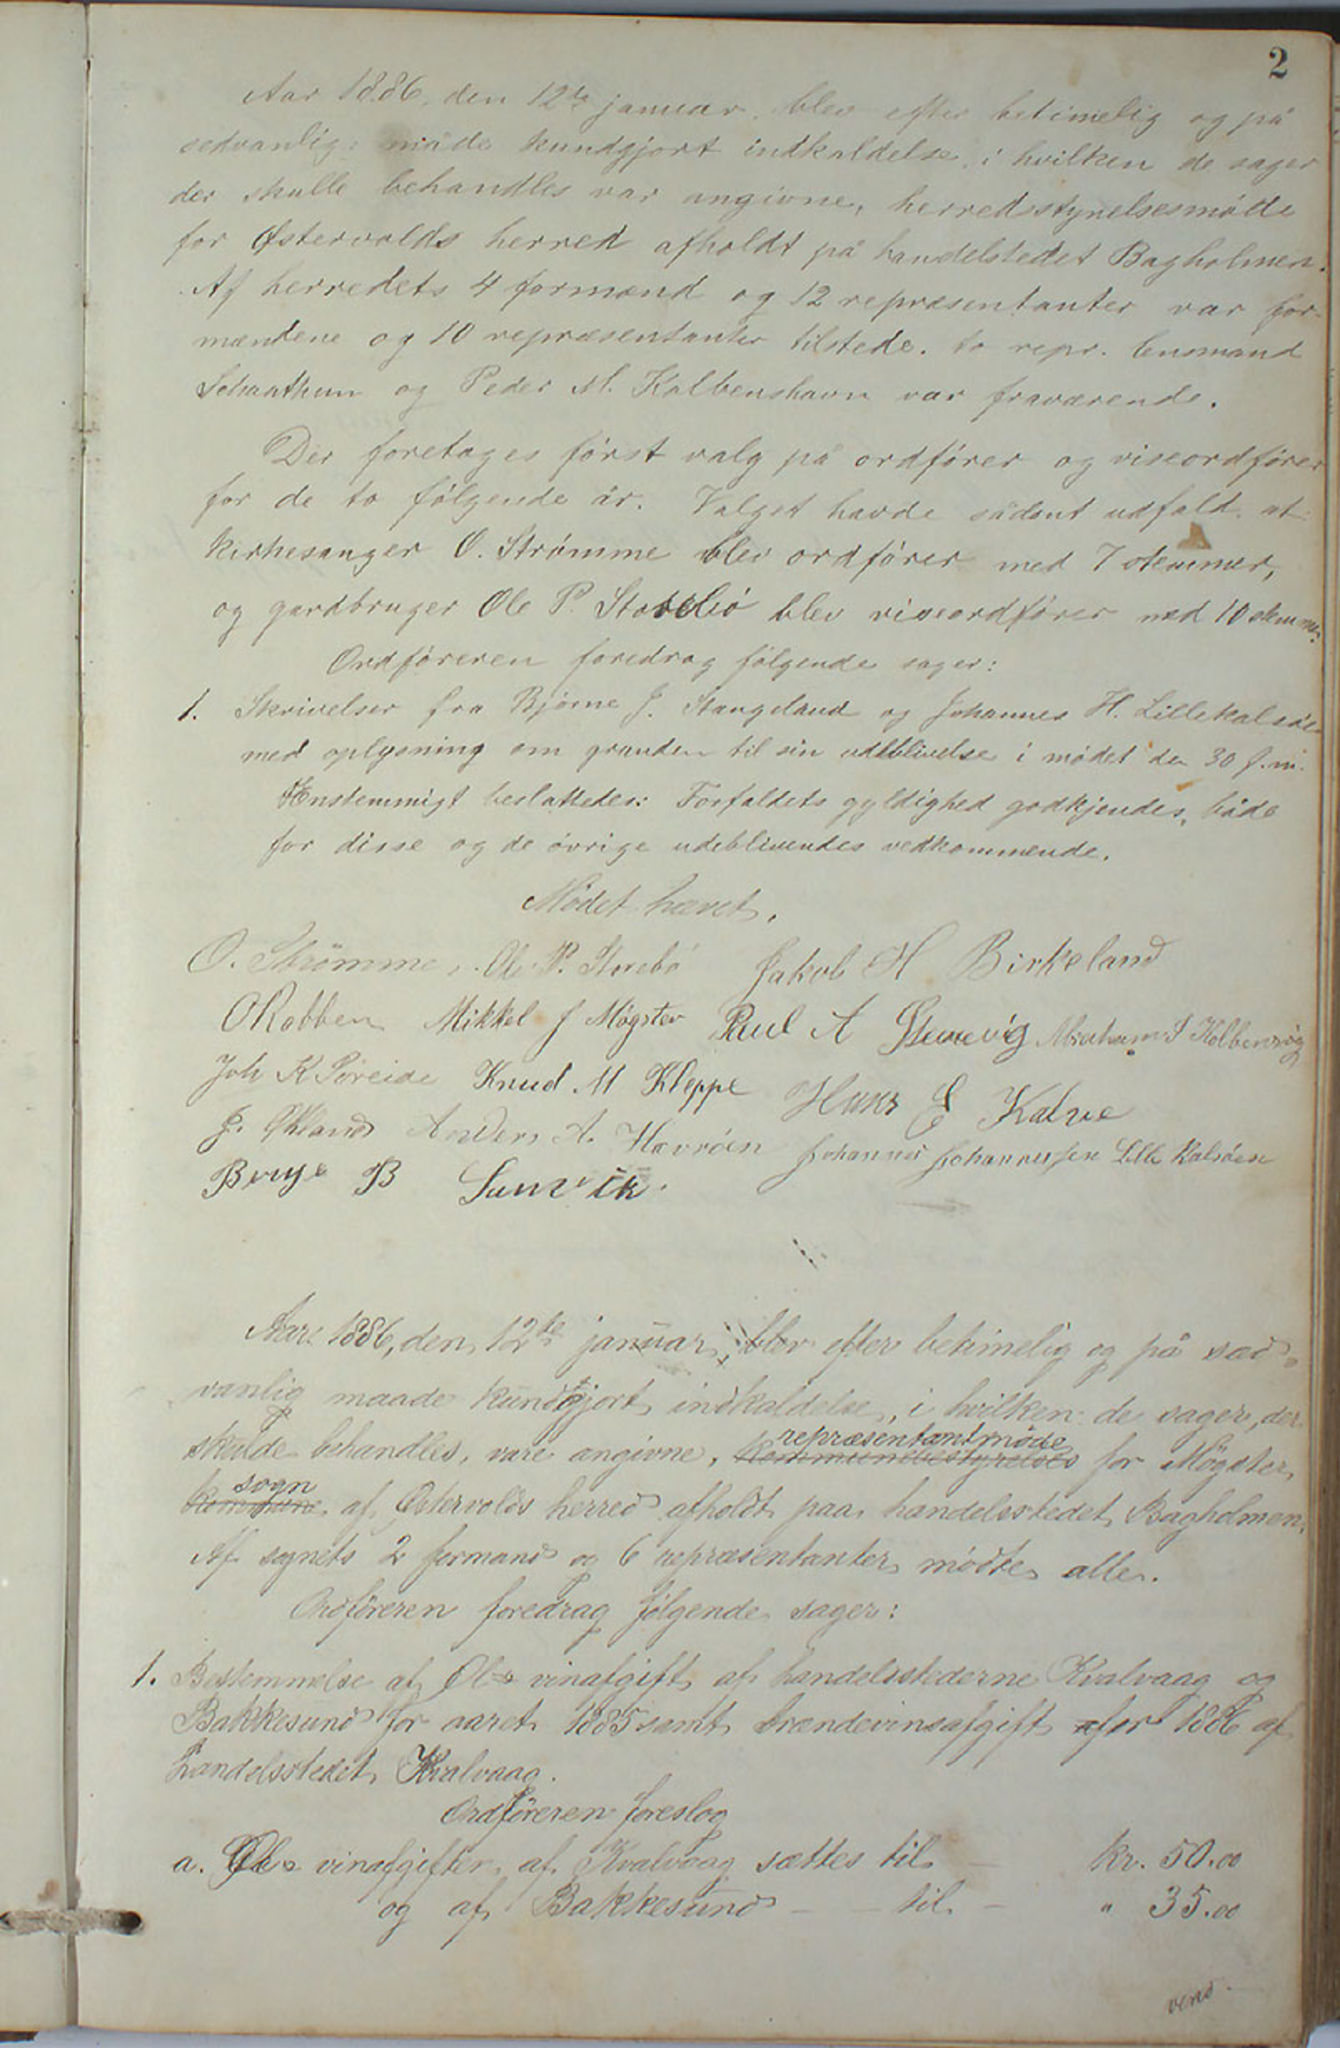 2
Aar 1886, den 12te januar, blev efter betimelig og på
sedvanlig måde kundgjort indkaldelse, i hvilken de sager
der skulle behandles var angivne, herredsstyrelsesmöde
for Østervolds herred afholdt på handelstedet Bagholmen.
Af herredets 4 formænd og 12 repræsentanter var for-
mændene og 10 repræsentanter tilstede. to repr. lensmand
Schaathun og Peder M. Kolbenshavn var fraværende.
Der foretages först valg på ordförer og viseordförer
for de to fölgende år. Valget havde sådant udfald, at
kirkesanger O. Strømme blev ordförer med 7 stemmer,
og gardbruger Ole P. Storebö blev viseordförer med 10 stemmer.
Ordföreren foredrog fölgende sager:
1. Skrivelser fra Bjørne J. Stangeland og Johannes H. Lillekalsöe
med oplysning om grunden til sin udeblivelse i mödet den 30 f.m.
Enstemmigt besluttedes: Forfaldets gyldighed godkjendes, både
for disse og de övrige udeblivendes vedkommende.
Mödet hævet.
O. Strömme. Ole P. Storebö Jakob H Birkeland
O Robben Mikkel J Møgster Paul A Stenevig Abraham J Kolbensvög
Joh K Söreide Knud M Kleppe Hans E Kalve
J. Økland Anders A. Havröen Johannes Johannessen Lille Kalsöen
Berge B Sunvik.
Aar 1886, den 12te januar, blev efter betimelig og på sæd-
vanlig maade kundgjort indkaldelse, i hvilken de sager, der
repræsentantmöde
skulde behandles, vare angivne, kommunebestyrelses for Mögster
sogn
kommune af Östervolds herred afholdt paa handelsstedet Bagholmen.
Af sognets 2 formænd og 6 repræsentanter mödte alle.
Ordföreren foredrag fölgende sager:
1. Bestemmelse af Øl- & vinafgift af handelsstederne Kvalvaag og
Bakkesund for aaret 1885 samt brændevinsafgift for 1886 af
handelsstedet Kvalvaag.
Ordföreren foreslog
a. Øl- & vinafgiften af Kvalvaag sættes til – kr. 50.00
og af Bakkesund – – til – " 35.00
vend.